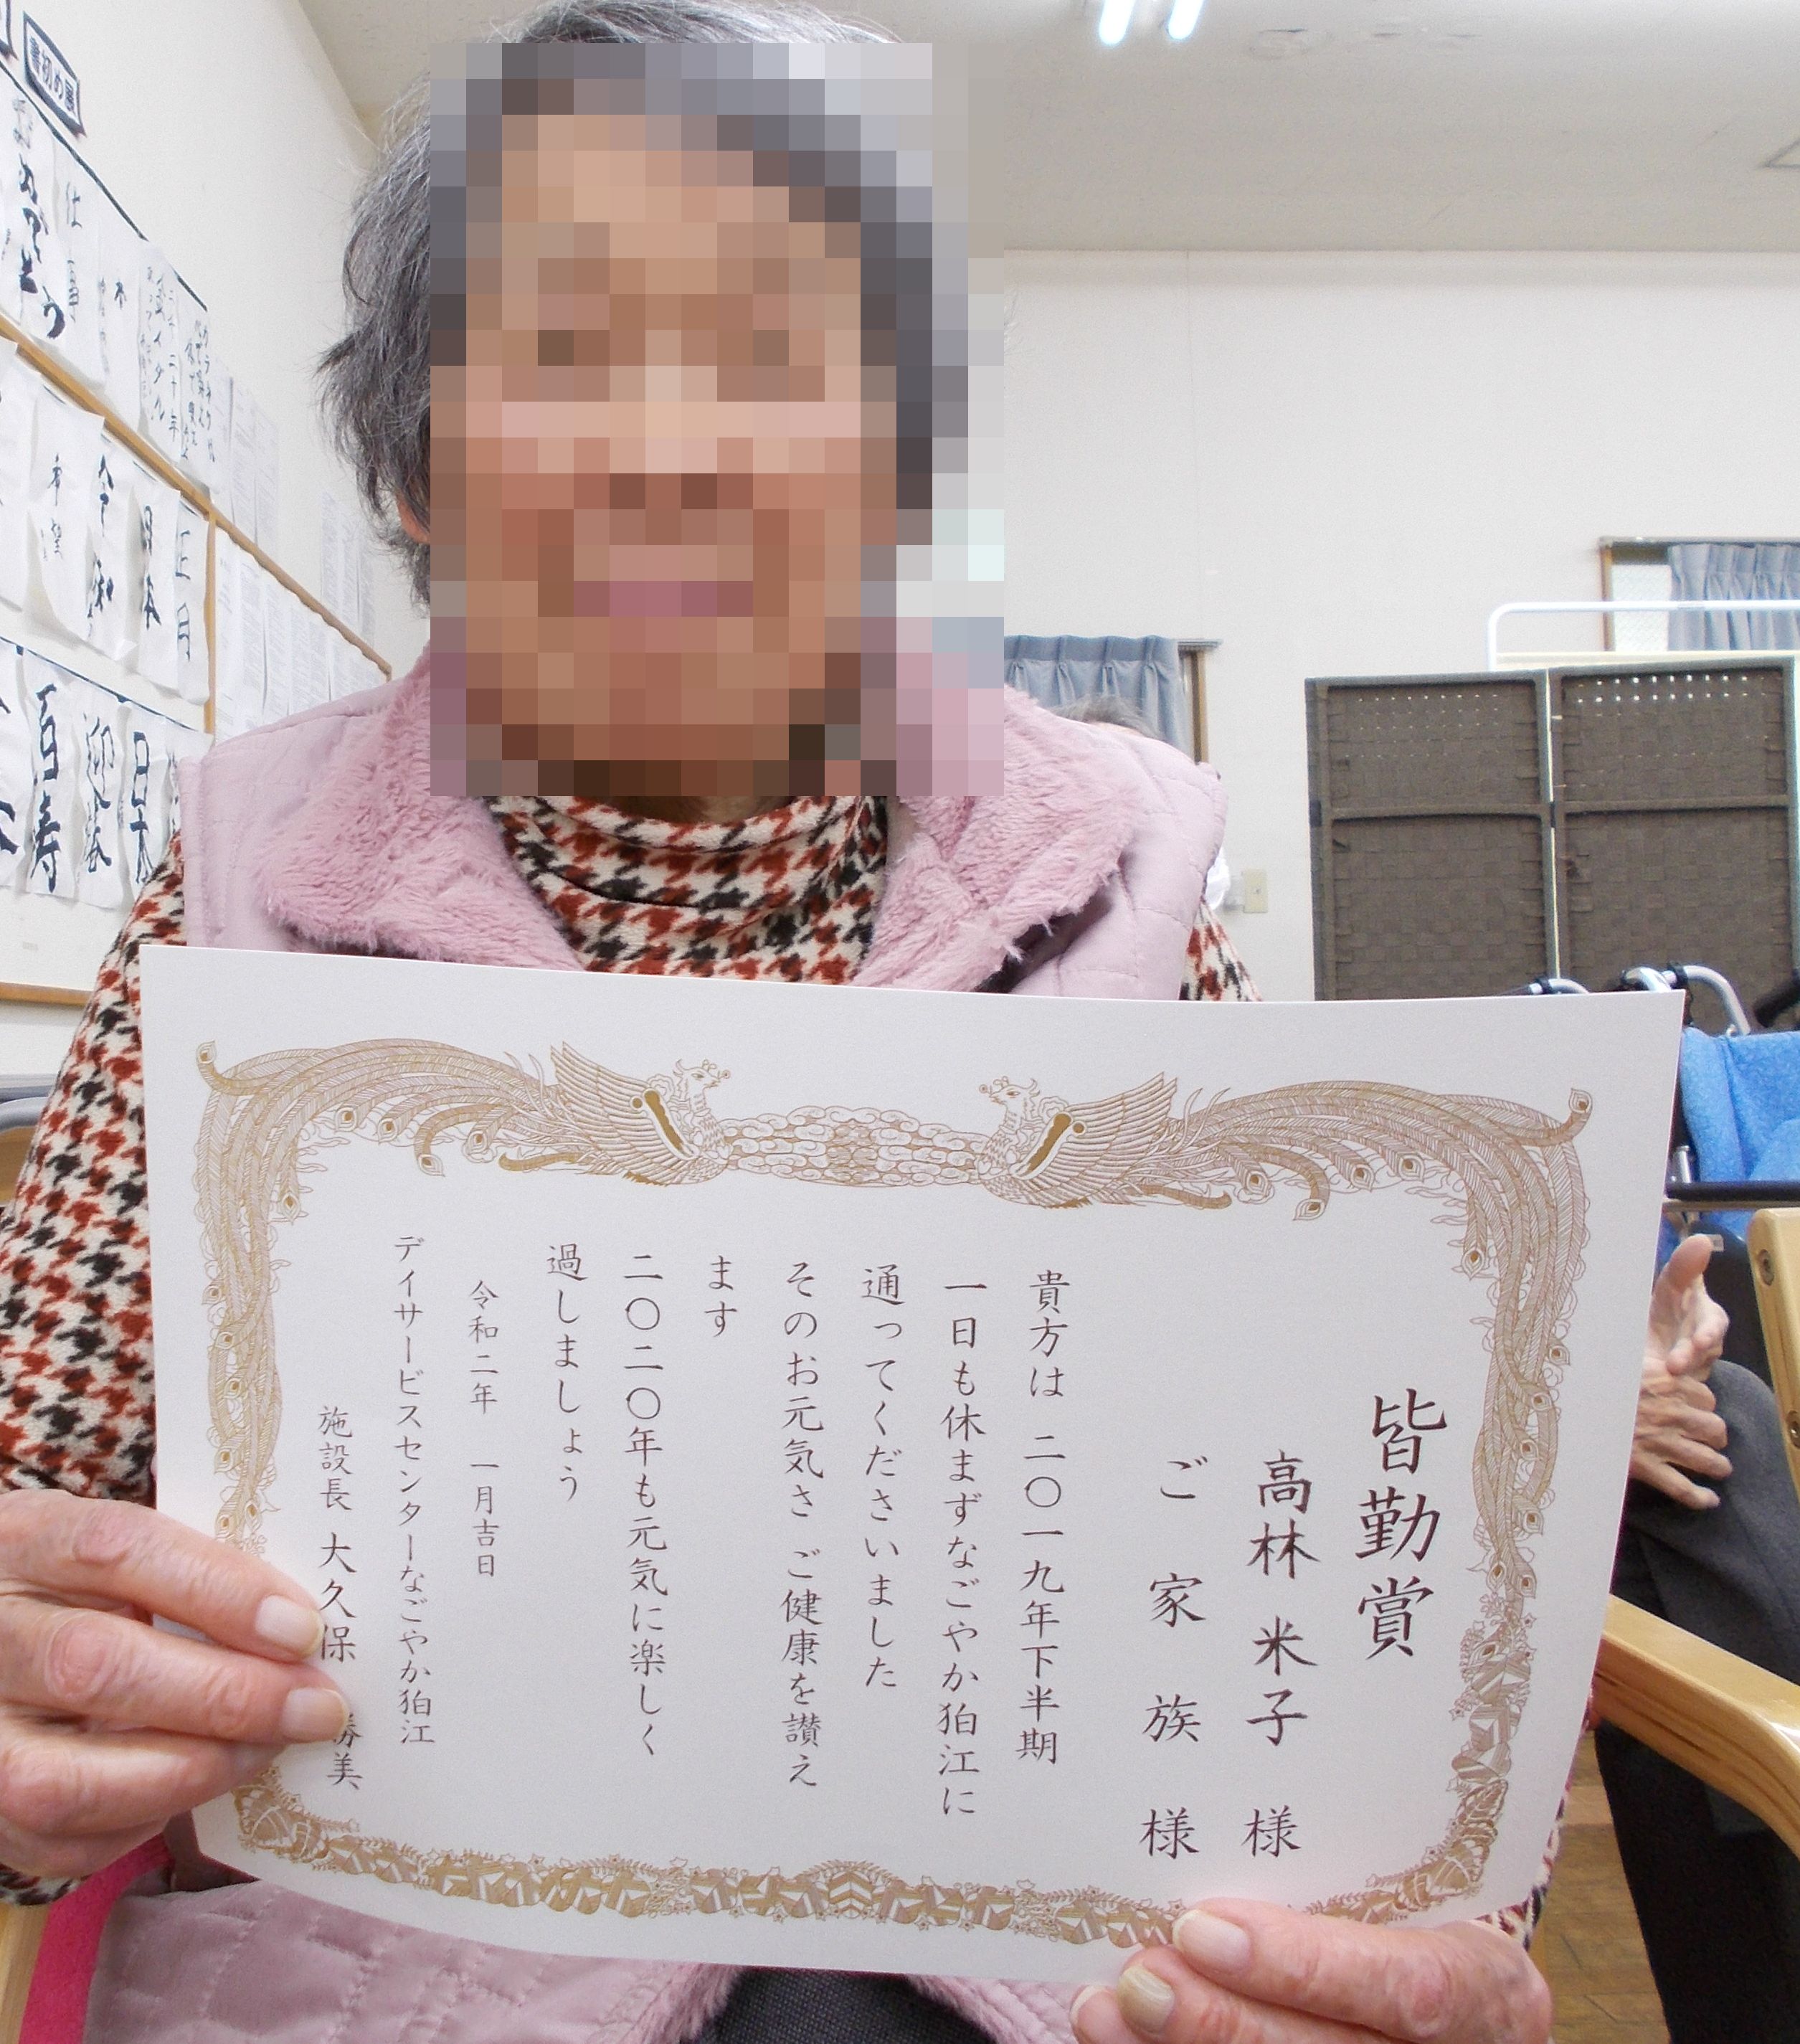 皆勤賞
高林 米子 様
ご家族様
貴方は 二〇一九年下半期
一日も休まずなごやか狛江に
通ってくださいました
そのお元気さ ご健康を讃え
ます
二〇二〇年も元気に楽しく
過しましょう
令和二年 一月吉日
デイサービスセンターなごやか狛江
施設長 大久保 勝美
書初め展
正月
日本
令和
希望
仕事
百寿
迎春
日本